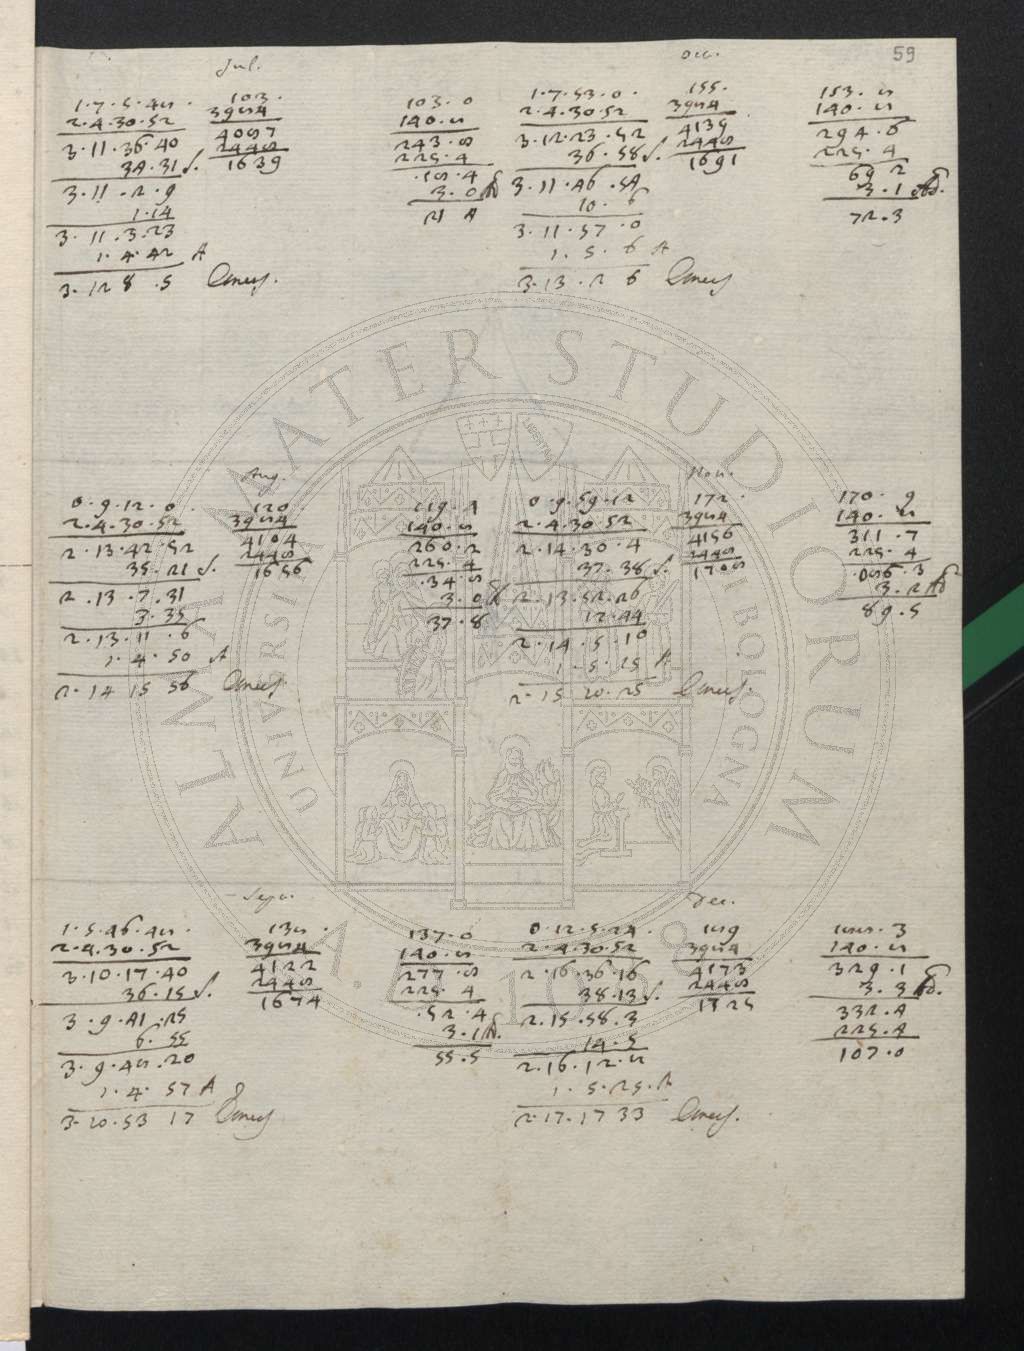 59
Jul.
1.7.5.48.
2.4.30.52
3.11.36.40
34.31 S.
3.11.2.9
1.14
3.11.3.23
1.4.42 A
3.12 8.5
103.
3984
4087
2448
1639
103.0
140.8
243.8
225.4
.18.4
3.0 Ad
21 4
Oct.
1.7.53.0.
2.4.30.52
3.12.23.52
36.58 S.
3.11.46.54
10.6
3.11.57.0
1.5.6 A
3.13.2 6
155.
3984
4139
2448
1691
153.8
140.8
294.6
225.4
69 2
3.1 Ad.
72.3
Aug.
0.9.12.0.
2.4.30.52
2.13.42.52
35.21 S.
2.13.7.31
3.35
2.13.11.6
1.4.50 A
2.14 15 56
120.
3984
4104
2448
1656
119.4
140.8
260.2
225.4
.34.8
3.0 Ad
37.8
Nov.
0.9.59.12
2.4.30.52.
2.14.30.4
37.38 S.
2.13.52.26
12.44
2.14.5.10
1.5.15 A
2.15 20.25
172.
3984
4156
2448
1708
170.9
140.8
311.7
225.4
.086.3
3.2 Ad
89.5
Sept.
1.5.46.48.
2.4.30.52
3.10.17.40
36.15 S.
3.9.41.25
6.55
3.9.48.20
1.4.57 A
3.10.53 17
138.
3984
4122
2448
1674
137.0
140.8
277.8
225.4
.52.4
3.1 Ad.
55.5
Dec.
0.12.5.24.
2.4.30.52
2.16.36.16
38.13 S.
2.15.58.3
14.5
2.16.12.8
1.5.25.A
2.17.17 33
189
3984
4173
2448
1725
188.3
140.8
329.1
3.3 Ad.
332.4
225.4
107.0
ALMA MATER STUDIORUM
A.D. 1088